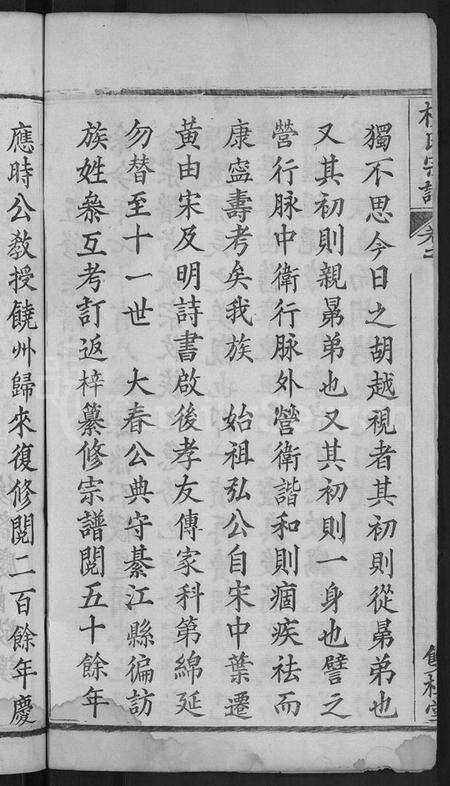 獨不思今日之胡越視者其初則從昴弟也
又其初則親昴弟也又其初則一身也譬之
營行脉中衛行脉外營衛諧和則痼疾祛而
康寍壽考矣我族 始祖弘公自宋中葉遷
黃由宋及明詩書啟後孝友傳家科第綿延
勿替至十一世 大春公典守綦江縣徧訪
族姓叅互考訂返梓纂修宗譜閱五十餘年
應時公教授饒州歸來復修閱二百餘年慶